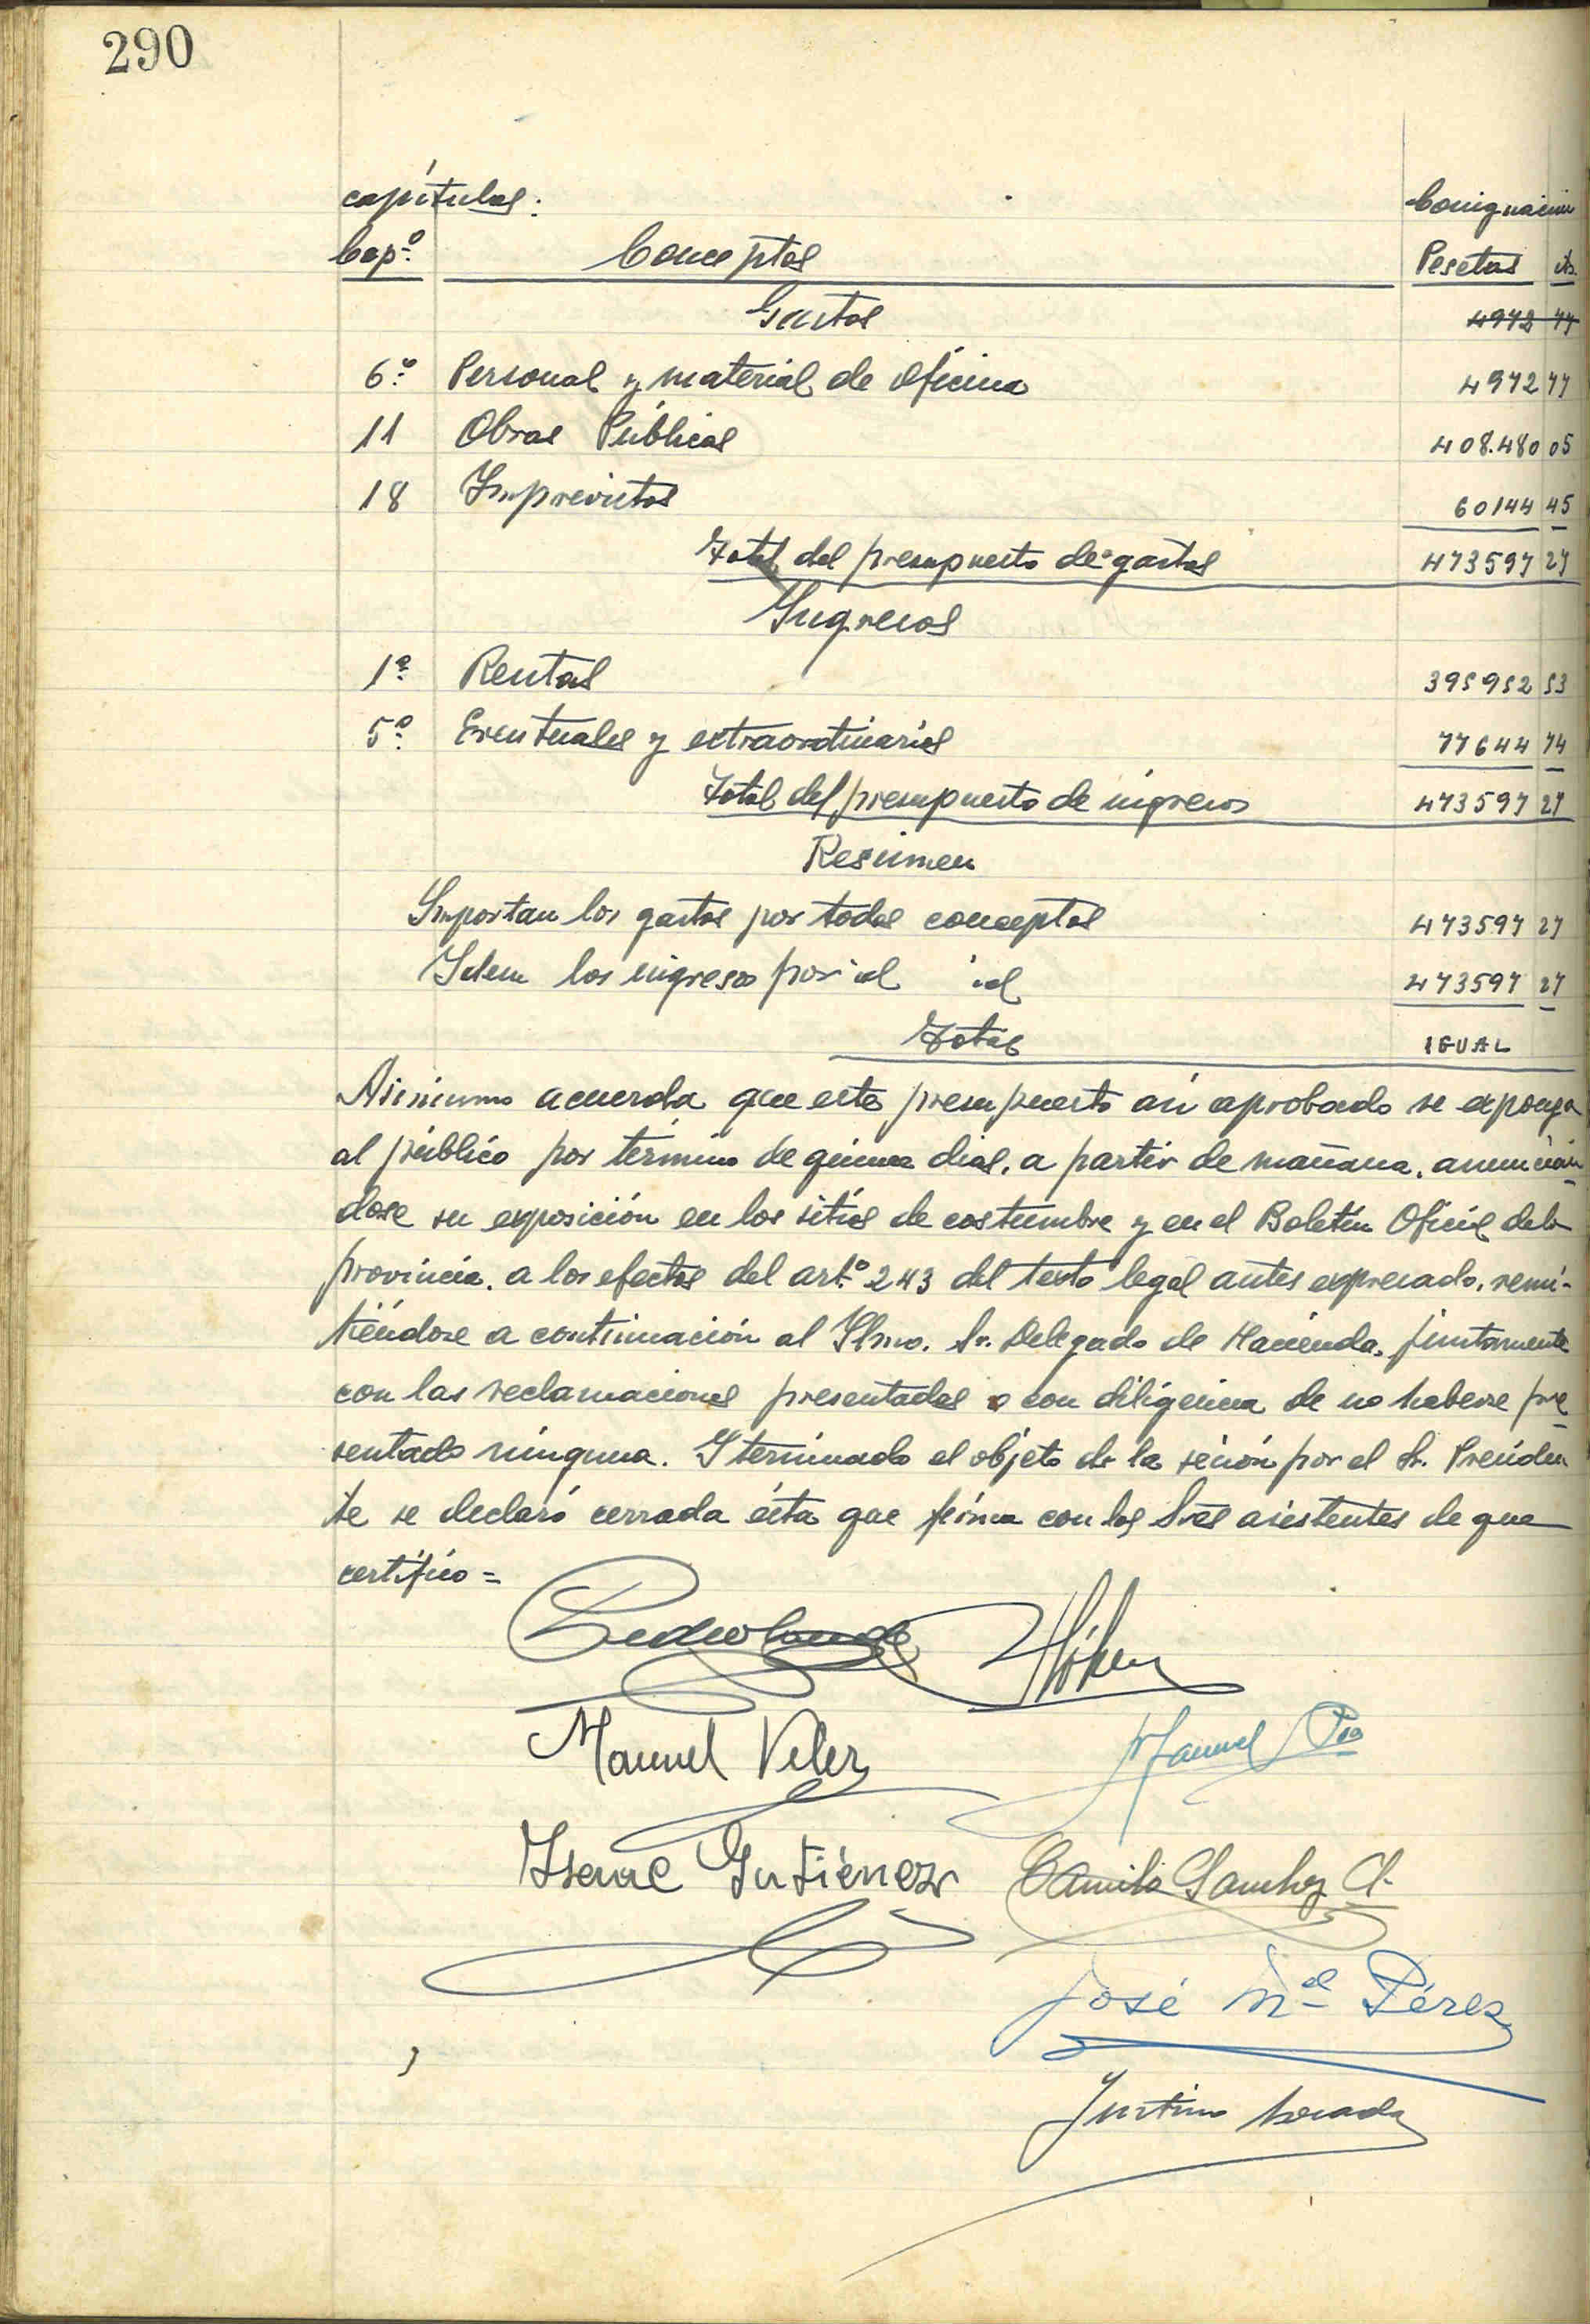 290
capítulos: Consignación
Capº Conceptos Pesetas cts.
Gastos 4972 77
6º Personal y material de oficina 4972 77
11 Obras Públicas 408.480 05
18 Imprevistos 60144 45
Total del presupuesto de gastos 473597 27
Ingresos
1º Rentas 395952 53
5º Eventuales y extraordinarios 77644 74
Total del presupuesto de ingresos 473597 27
Resumen
Importan los gastos por todos conceptos 473597 27
Idem los ingresos por id id 473597 27
Total IGUAL
Asimismo acuerda que este presupuesto así aprobado se exponga
al público por término de quince dias, a partir de mañana, anuncián
dose su exposición en los sitios de costumbre y en el Boletín Oficial de la
provincia, a los efectos del artº 243 del texto legal antes expresado, remi-
tiéndose a continuación al Ilmo. Sr. Delegado de Hacienda, juntamente
con las reclamaciones presentadas o con diligencia de no haberse pre
sentado ninguna. Y terminado el objeto de la sesión por el Sr. Presiden
te se declaró cerrada ésta que firma con los Sres asistentes de que
certifico =
Manuel Velez Manuel
Isaac Gutiérrez Camilo Sanchez A.
José Mel Pérez
Justino